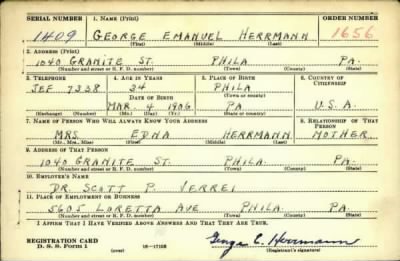 SERIAL NUMBER 1. NAME (Print) ORDER NUMBER
1409 GEORGE EMANUEL HERRMANN 1656
(First) (Middle) (Last)
2. ADDRESS (Print)
1040 GRANITE ST. PHILA PA.
(Number and street or R. F. D. number) (Town) (County) (State)
3. TELEPHONE 4. AGE IN YEARS 5. PLACE OF BIRTH 6. COUNTRY OF CITIZENSHIP
JEF 7338 34 PHILA
DATE OF BIRTH (Town or county)
MAR. 4 1906 PA U.S.A.
(Exchange) (Number) (Mo.) (Day) (Yr.) (State or country)
7. NAME OF PERSON WHO WILL ALWAYS KNOW YOUR ADDRESS 8. RELATIONSHIP OF THAT PERSON
MRS. EDNA HERRMANN MOTHER.
(Mr., Mrs., Miss) (First) (Middle) (Last)
9. ADDRESS OF THAT PERSON
1040 GRANITE ST. PHILA. PA.
(Number and street or R. F. D. number) (Town) (County) (State)
10. EMPLOYER'S NAME
DR. SCOTT P. VERREI
11. PLACE OF EMPLOYMENT OR BUSINESS
5605 LORETTA AVE PHILA. PA.
(Number and street or R. F. D. number) (Town) (County) (State)
I AFFIRM THAT I HAVE VERIFIED ABOVE ANSWERS AND THAT THEY ARE TRUE.
REGISTRATION CARD George E. Herrmann
D. S. S. Form 1 (over) 16—17105 (Registrant's signature)